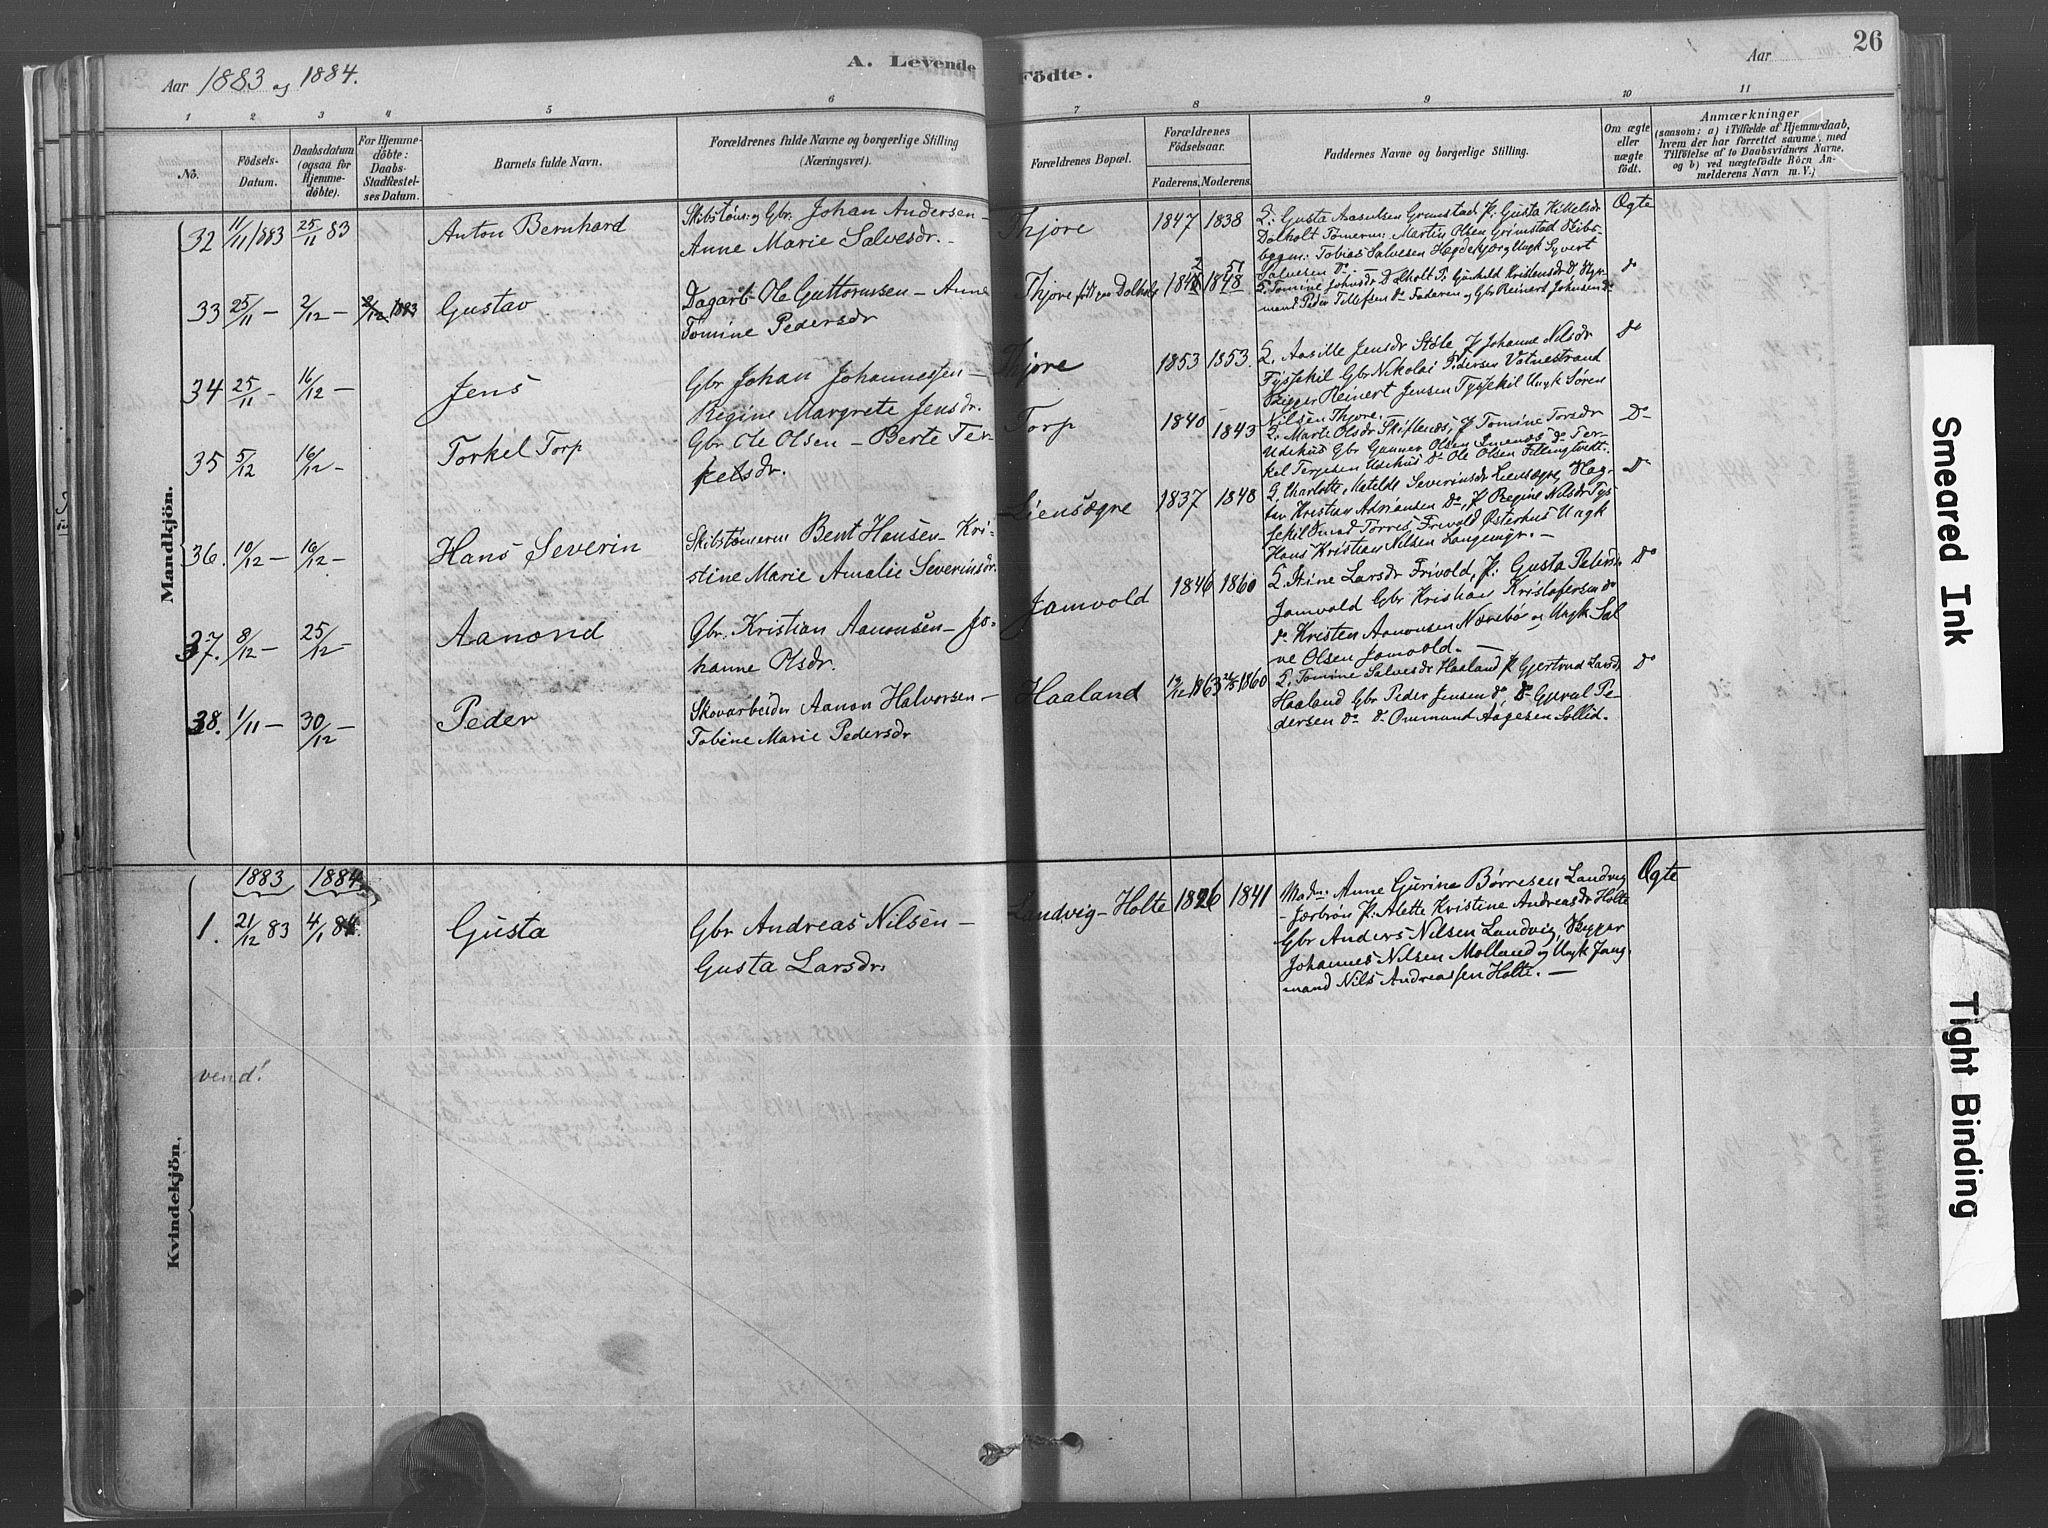 Aar 1883 og 1884.
A. Levende Födte.
Aar
26
1 2 3 4 5 6 7 8 9 10 11
No.
Födsels-
Datum.
Daabsdatum
(ogsaa for
Hjemme-
döbte).
For Hjemme-
döbte:
Daabs-
Stadfæstel-
ses Datum.
Barnets fulde Navn.
Forældrenes fulde Navne og borgerlige Stilling
(Næringsvei).
Forældrenes Bopæl.
Forældrenes
Födselsaar.
Faderens. Moderens.
Faddernes Navne og borgerlige Stilling.
Om ægte
eller
uægte
födt.
Anmærkninger
(saasom: a) i Tilfælde af Hjemmedaab,
hvem der har forrettet samme, med
Tilföielse af to Daabsvidners Navne,
og b) ved uægtefödte Börn An-
melderens Navn m. V.)
Mandkjön.
32 11/11 1883 25/11 83 Anton Bernhard
Skibstøm: og Gbr. Johan Andersen –
Anne Marie Salvesdr. –
Thjore 1847 1838
Q: Gusta Aasulsen Grimstad P: Gusta Killelsdr
Dolholt Tømerm: Martin Olsen Grimstad Skibs-
bygm: Tobias Salvesen Hegdekjær og Ungk Syvert
Salvesen Do.
Ægte
33 25/11 – 2/12 – 2/12 1883 Gustav
Dagarb. Ole Guttormsen – Anne
Tomine Pedersdr
Thjore født paa Dolholt 1848
Q. Tomine Johnsdr Dolholt P. Gunhild Kristensdr Do
Peder Tellefsen Do Faderen og Gbr Reinert Johnsen Do
Do
34 25/11 – 16/12 – Jens
Gbr Johan Johannessen –
Regine Margrete Jensdr.
Thjore 1853 1853.
Q. Aasille Jensdr Støle P Johanne Nilsdr
Tyssekil Gbr Nikolai Pedersen Vatnestrand
Reinert Jensen Tyssekil Ungk Søren
Nilsen Thjore.
Do
35 5/12 16/12 – Torkel Torp
Gbr Ole Olsen – Berte Ter-
kelsdr.
Torp 1840 1843
Q. Marte Olsdr Skiftenes, P Tomine Torsdr
Udehus Gbr Gunner Olsen Do Ter-
kel Terjesen Udehus Do Ole Olsen
Do
36. 10/12 – 16/12 – Hans Severin
Skibstømerm Bent Hansen – Kri-
stine Marie Amalie Severinsdr.
Liensøgre 1837 1840
Q. Charlotte Matelde Severinsdr Liensøgre,
Kristian Adriansen Do, P Regine Nilsdr Tys-
sekil Torres Frivold Østerhus Ungk
Hans Kristian Nilsen –
Do
37. 8/12 – 25/12 – Aanond
Gbr. Kristian Aanonsen – Jo-
hanne Olsdr.
Jamvold 1846 1860
Q. Stine Larsdr Frivold, P: Gusta Petersdr
Jamvold Gbr Kristian Kristofersen Do
Do Kristen Aanonsen Nørebø og Ungk Sal
ve Olsen Jamvold. –
Do
38. 1/11 – 30/12 – Peder
Skovarbeider Aanon Halvorsen –
Tobine Marie Pedersdr
Haaland 19/12 1863 1860
Q. Tomine Salvesdr Haaland P Gjertrud Larsd.
Haaland Gbr Peder Jensen Do, Do Gjerul Pe-
dersen Do Do Ommund Aagesen Sollid.
Do
Kvindekjön.
1883 1884
1. 21/12 83 4/1 84. Gusta
Gbr Andreas Nilsen –
Gusta Larsdr.
Landvig – Holte 1826 1841
Madm. Anne Gurine Børresen Landvig
P. Alette Kristine Andreasdr Holte
Gbr Anders Nilsen Landvig,
Johannes Nilsen Molland og Ungk Jang
mand Nils Andreassen Holte. –
Ægte
vend!
Smeared Ink
Tight Binding